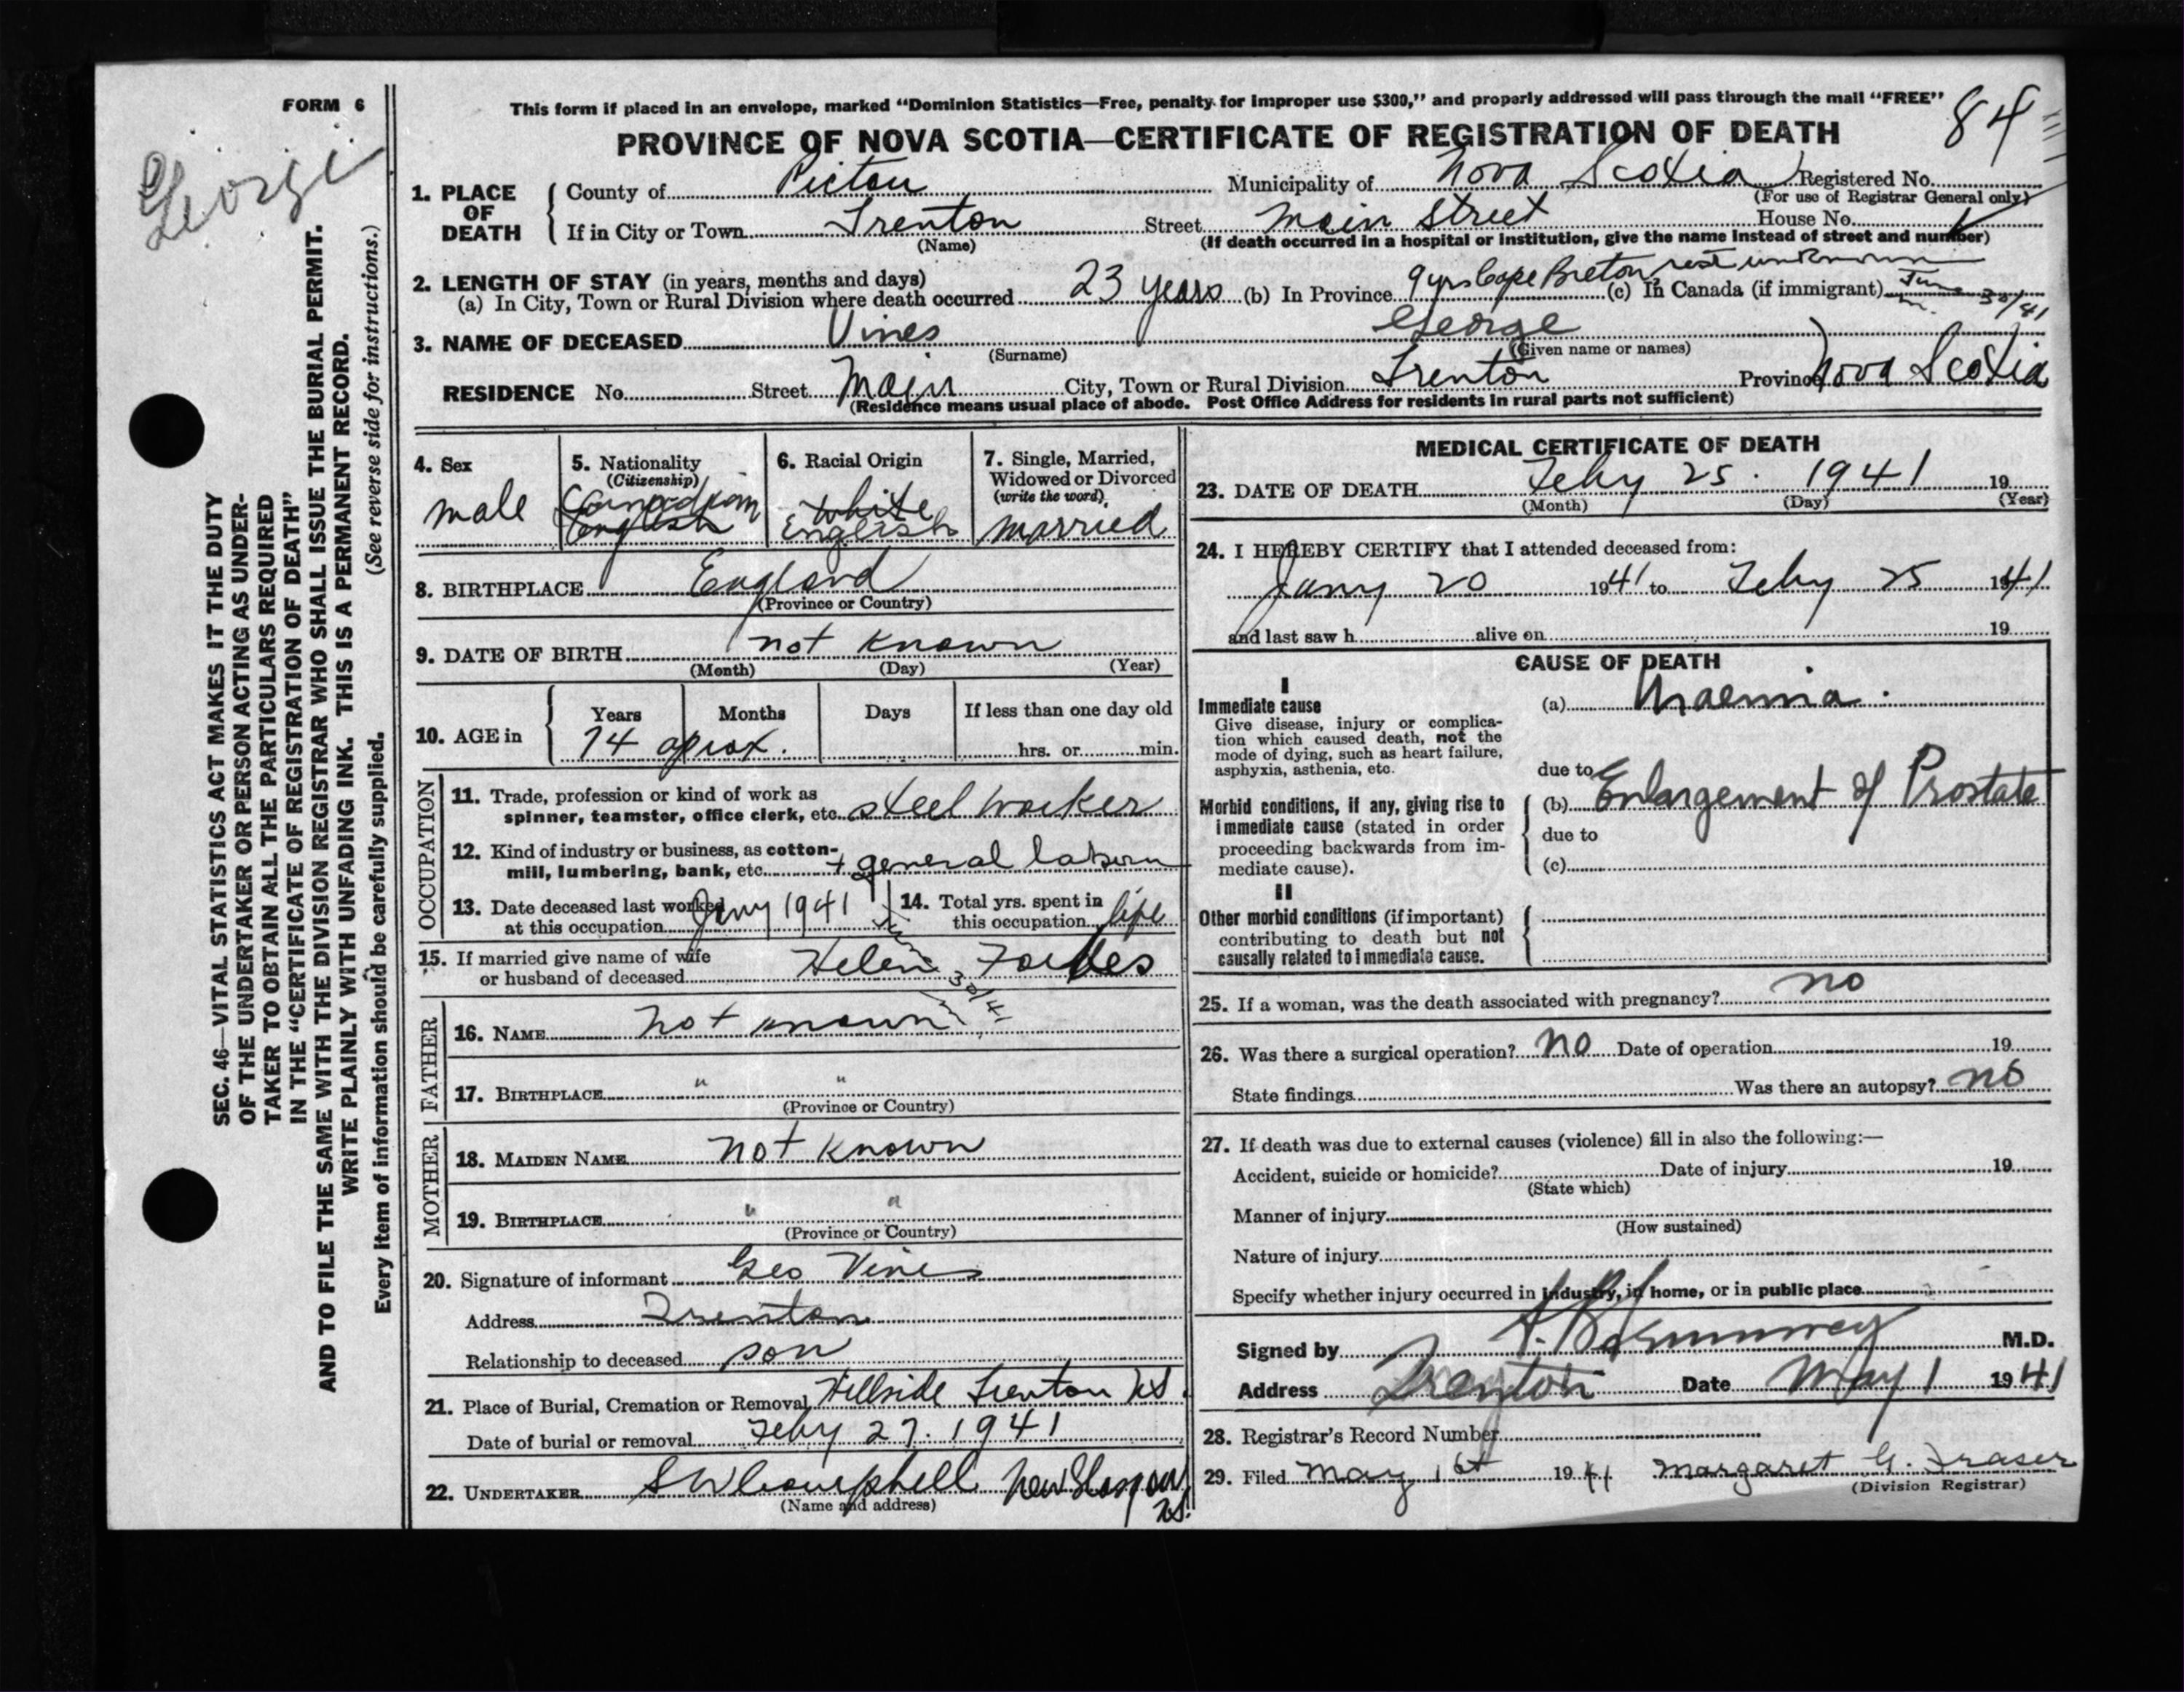 FORM 6
George
SEC. 46—VITAL STATISTICS ACT MAKES IT THE DUTY
OF THE UNDERTAKER OR PERSON ACTING AS UNDER-
TAKER TO OBTAIN ALL THE PARTICULARS REQUIRED
IN THE "CERTIFICATE OF REGISTRATION OF DEATH"
AND TO FILE THE SAME WITH THE DIVISION REGISTRAR WHO SHALL ISSUE THE BURIAL PERMIT.
WRITE PLAINLY WITH UNFADING INK. THIS IS A PERMANENT RECORD.
Every item of information should be carefully supplied. (See reverse side for instructions.)
This form if placed in an envelope, marked "Dominion Statistics—Free, penalty for improper use $300," and properly addressed will pass through the mail "FREE"
84
PROVINCE OF NOVA SCOTIA—CERTIFICATE OF REGISTRATION OF DEATH
1. PLACE OF DEATH
County of Pictou Municipality of Nova Scotia Registered No.
(For use of Registrar General only)
If in City or Town Trenton Street Main Street House No.
(Name) (If death occurred in a hospital or institution, give the name instead of street and number)
2. LENGTH OF STAY (in years, months and days)
(a) In City, Town or Rural Division where death occurred 23 years (b) In Province 9 yrs Cape Breton, rest unknown (c) In Canada (if immigrant) June 30/41
3. NAME OF DECEASED Vines George
(Surname) (Given name or names)
RESIDENCE No. Street Main City, Town or Rural Division Trenton Province Nova Scotia
(Residence means usual place of abode. Post Office Address for residents in rural parts not sufficient)
4. Sex
male
5. Nationality
(Citizenship)
Canadian
English
6. Racial Origin
white
English
7. Single, Married,
Widowed or Divorced
(write the word)
married
8. BIRTHPLACE England
(Province or Country)
9. DATE OF BIRTH not known
(Month) (Day) (Year)
10. AGE in
Years Months Days If less than one day old
74 aprox. hrs. or min.
OCCUPATION
11. Trade, profession or kind of work as
spinner, teamster, office clerk, etc. steel worker
12. Kind of industry or business, as cotton-
mill, lumbering, bank, etc. + general
13. Date deceased last worked
at this occupation Jany 1941
14. Total yrs. spent in
this occupation life
15. If married give name of wife
or husband of deceased Helen Forbes
30/41
FATHER
16. NAME not known
17. BIRTHPLACE " "
(Province or Country)
MOTHER
18. MAIDEN NAME not known
19. BIRTHPLACE " "
(Province or Country)
20. Signature of informant Geo Vines
Address Trenton
Relationship to deceased son
21. Place of Burial, Cremation or Removal Hillside Trenton NS.
Date of burial or removal Feby 27. 1941
22. UNDERTAKER S W Campbell New Glasgow
NS.
(Name and address)
MEDICAL CERTIFICATE OF DEATH
23. DATE OF DEATH Feby 25. 1941 19
(Month) (Day) (Year)
24. I HEREBY CERTIFY that I attended deceased from:
Jany 20 1941 to Feby 25 1941
and last saw h alive on 19
CAUSE OF DEATH
I
Immediate cause
Give disease, injury or complica-
tion which caused death, not the
mode of dying, such as heart failure,
asphyxia, asthenia, etc.
(a) Uraemia.
due to
Morbid conditions, if any, giving rise to
immediate cause (stated in order
proceeding backwards from im-
mediate cause).
(b) Enlargement of Prostate
due to
(c)
II
Other morbid conditions (if important)
contributing to death but not
causally related to immediate cause.
25. If a woman, was the death associated with pregnancy? no
26. Was there a surgical operation? no Date of operation 19
State findings Was there an autopsy? no
27. If death was due to external causes (violence) fill in also the following:—
Accident, suicide or homicide? Date of injury 19
(State which)
Manner of injury
(How sustained)
Nature of injury
Specify whether injury occurred in industry, in home, or in public place
Signed by M.D.
Address Trenton Date May 1 1941
28. Registrar's Record Number
29. Filed May 1st 1941 Margaret G. Fraser
(Division Registrar)